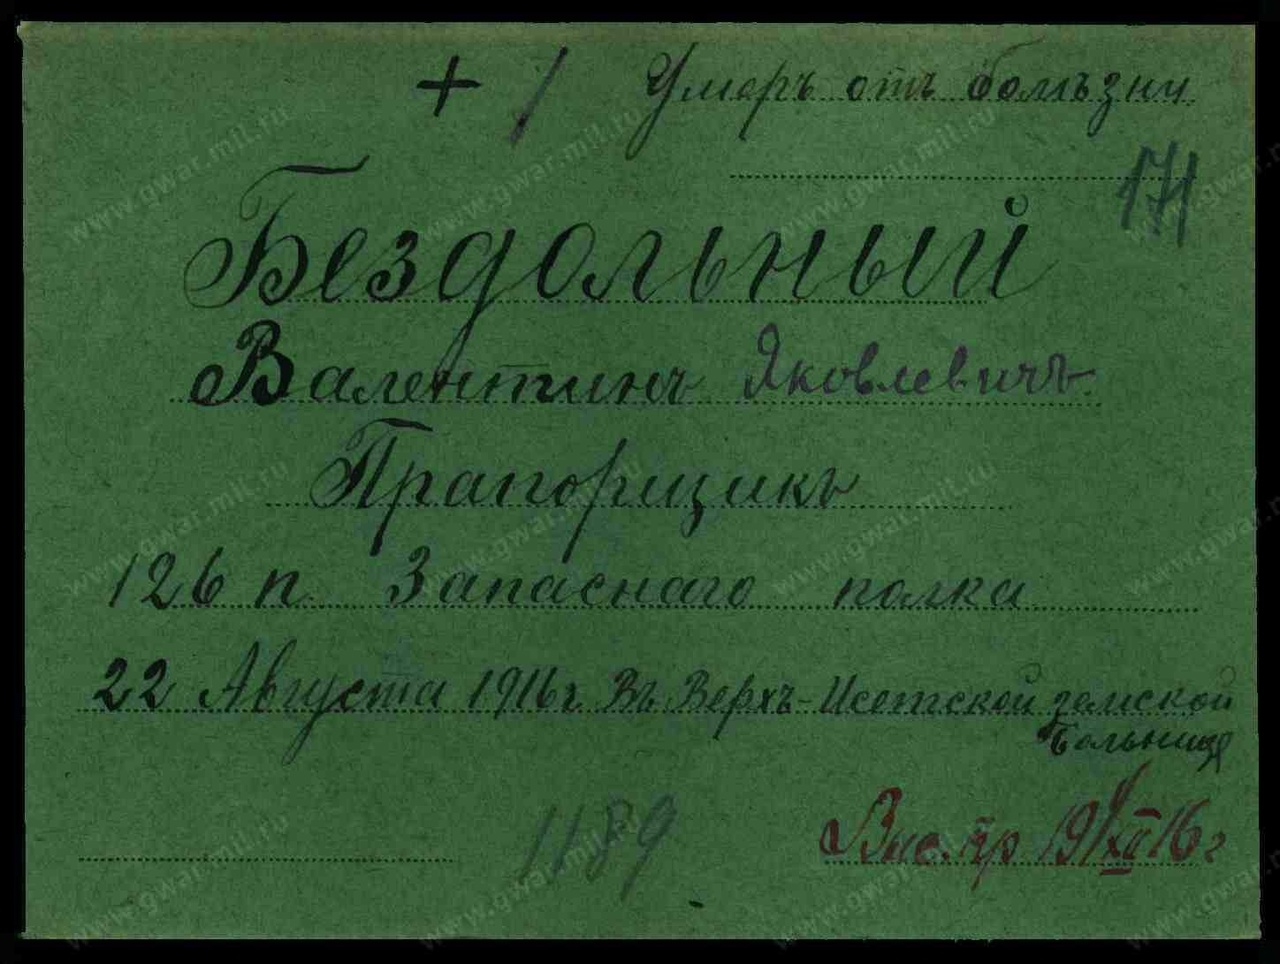 + / Умеръ отъ болѣзни
171
Бездольный
Валентинъ Яковлевичъ
Прапорщикъ
126 п. Запаснаго полка
22 Августа 1916 г. Въ Верхъ-Исетской земской
больницѣ
1189
Выс. пр 19 XII 16 г
www.gwar.mil.ru